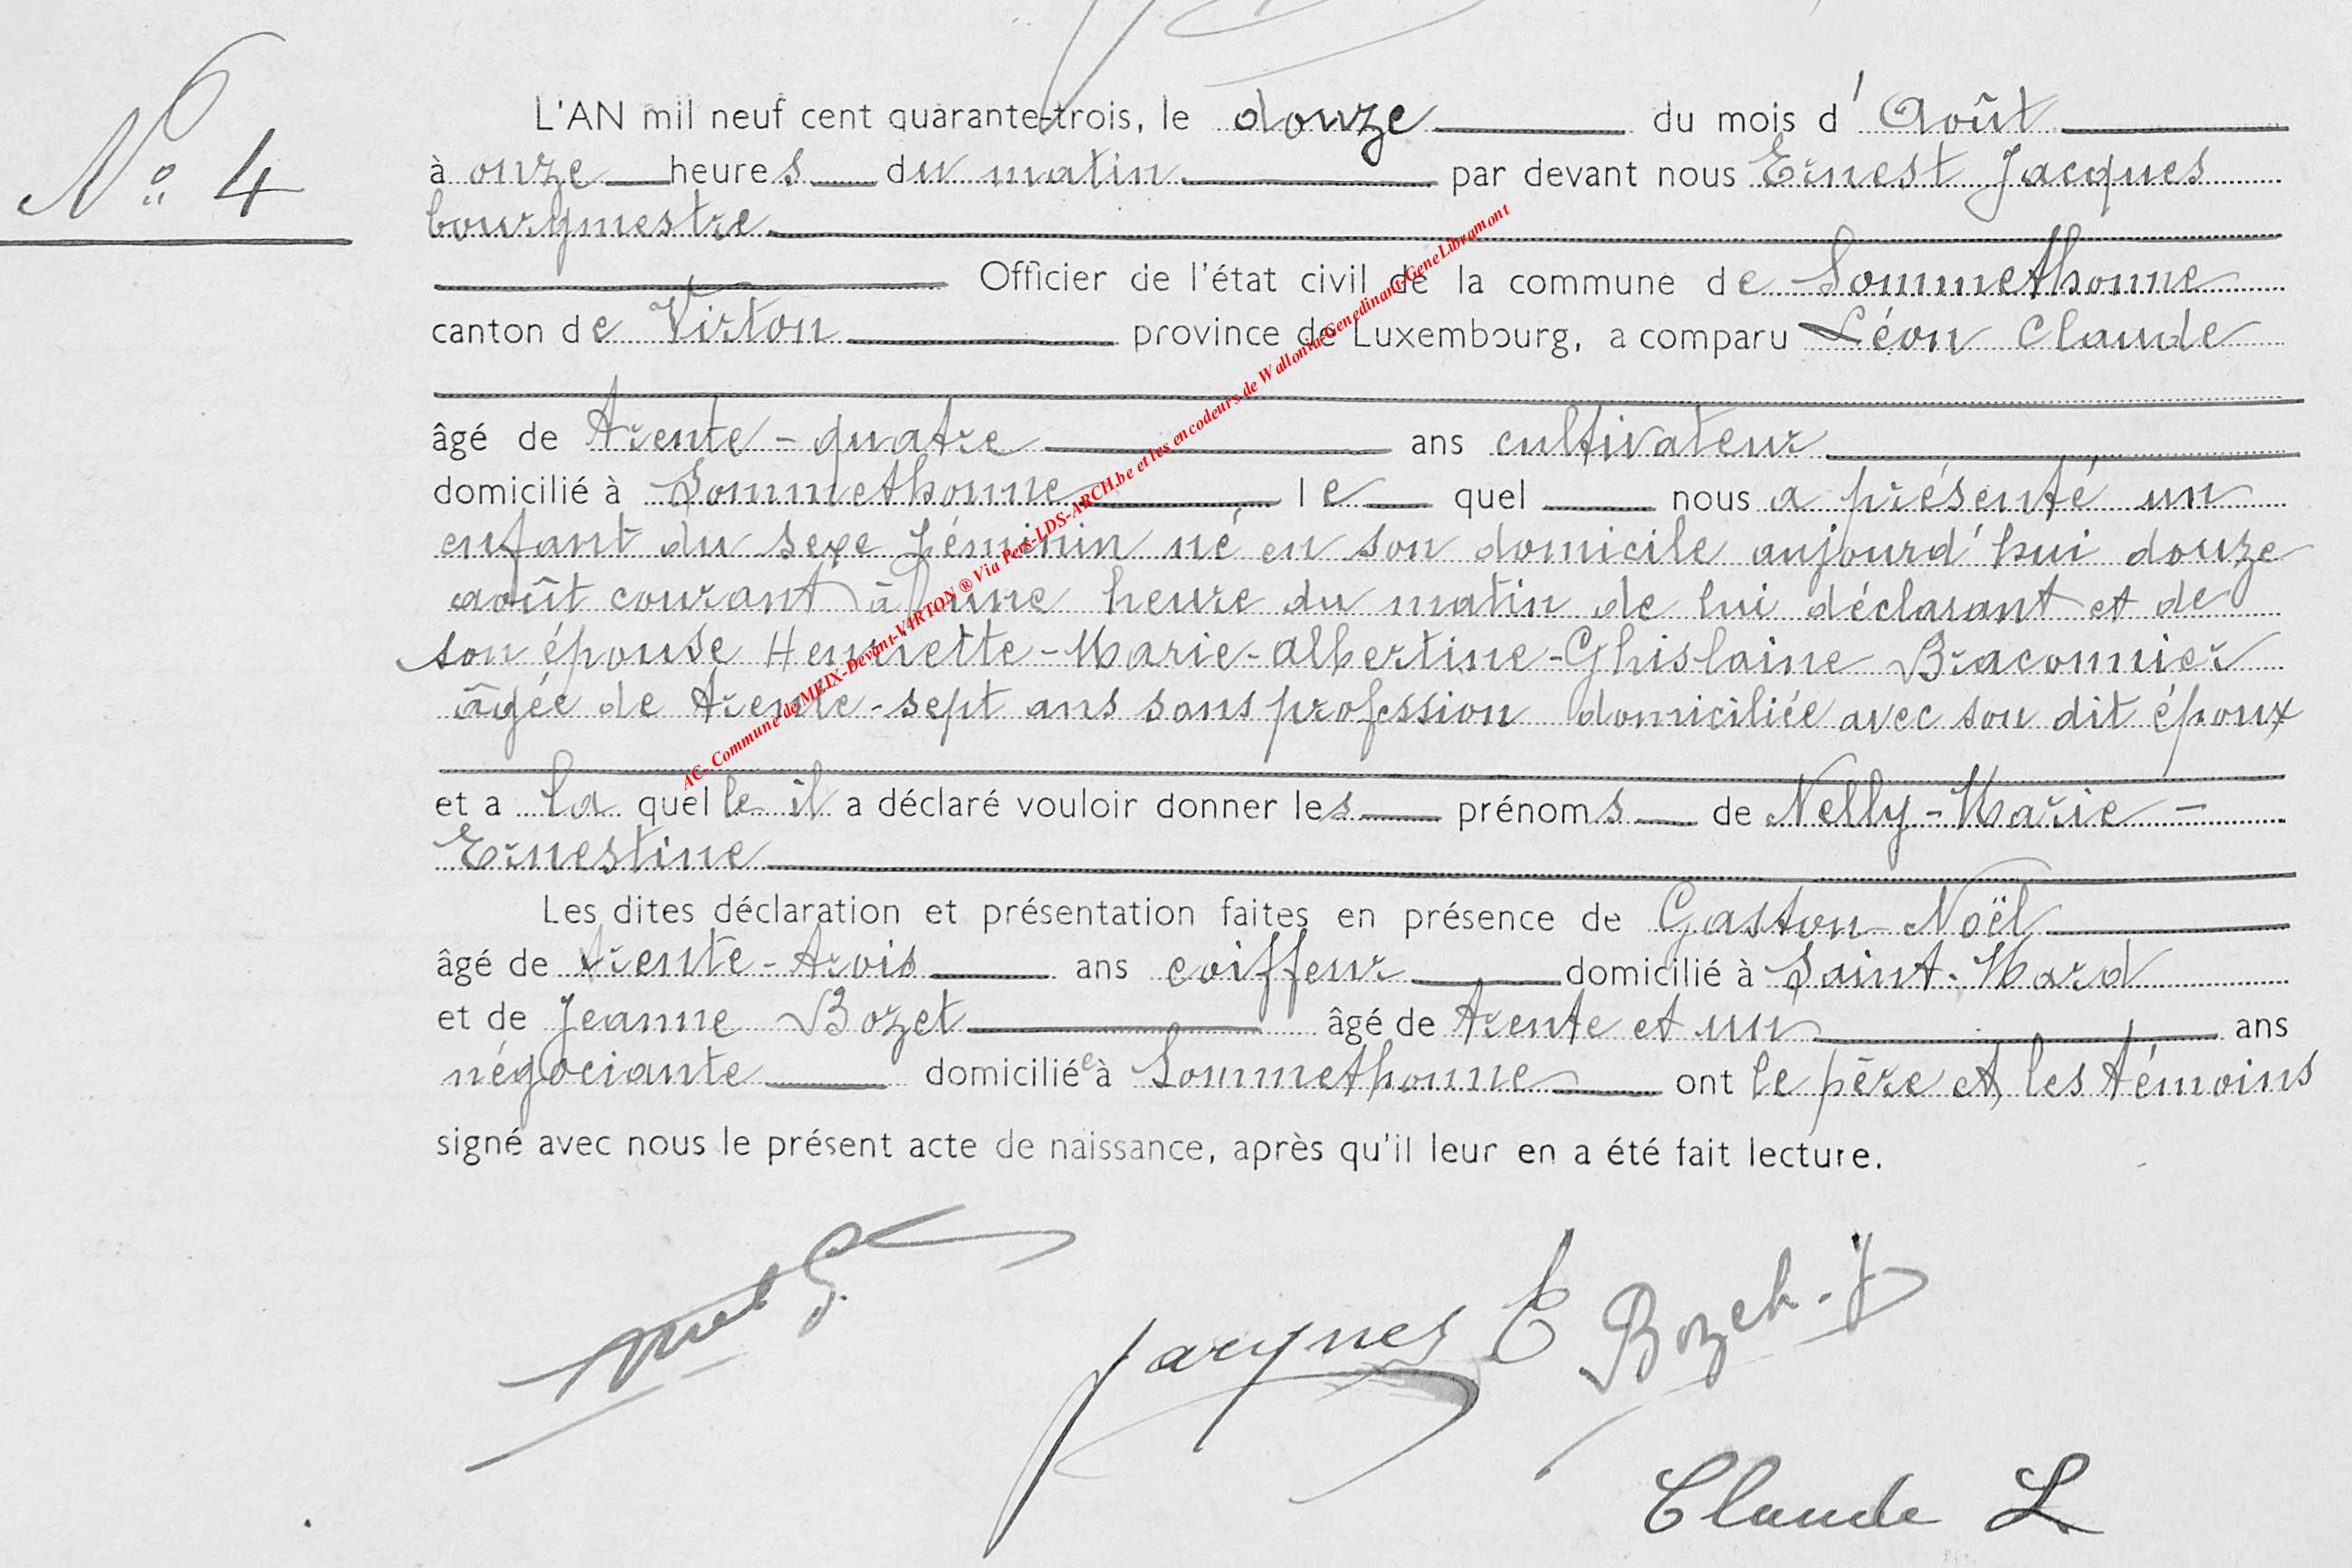 N° 4
L'AN mil neuf cent quarante-trois, le douze du mois d'Août
à onze heures du matin par devant nous Ernest Jacques
bourgmestre
Officier de l'état civil de la commune de Sommethonne
canton de Virton province de Luxembourg, a comparu Léon Claude
âgé de trente-quatre ans cultivateur
domicilié à Sommethonne le quel nous a présenté un
enfant du sexe féminin né en son domicile aujourd'hui douze
août courant à une heure du matin de lui déclarant et de
son épouse Henriette-Marie-Albertine-Ghislaine Braconnier
âgée de trente-sept ans sans profession domiciliée avec son dit époux
et a la quelle il a déclaré vouloir donner les prénoms de Nelly-Marie-
Ernestine
Les dites déclaration et présentation faites en présence de Gaston Noël
âgé de trente-trois ans coiffeur domicilié à Saint-Mard
et de Jeanne Bozet âgé de trente et un ans
négociante domiciliée à Sommethonne ont le père et les témoins
signé avec nous le présent acte de naissance, après qu'il leur en a été fait lecture.
Jacques E
Claude L
AC- Commune de MEIX-Devant-VIRTON ® Via Pers-LDS-ARCH.be et les encodeurs de Wallonia-Genedinant-GeneLibramont